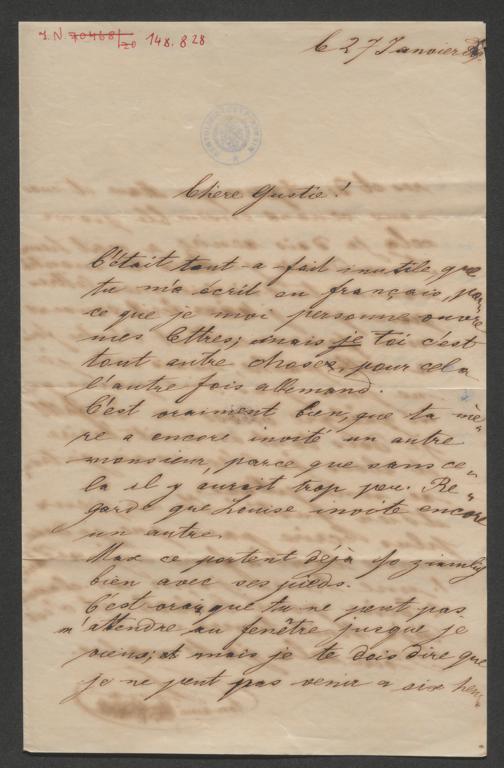 J.N. 70468/20 148.828
C 27 Janvier
Chère Gustie!
C'était tout-a-fait inutile, que
tu m'a écrit en français, par"
ce que je moi personne ouvre
mes lettres; mais je toi c'est
tout autre chose, pour cela
l'autre fois allemand.
C'est vraiment bien, que ta mè"
re a encore invité un autre
monsieur, parce que sans ce"
la il y aurait trop peu. Re"
garde que Louise invite encore
un autre.
Max ce portent déjà so ziemlich
bien avec ses pieds.
C'est vrai que tu ne peut pas
m'attendre au fenêtre jusque je
viens; mais je te dois dire que
je ne peut pas venir a six heu"